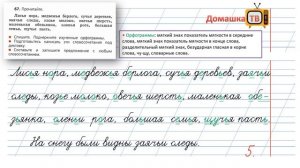 67. Прочитайте.
Лисья нора, медвежья берлога, сучья деревьев,
заячьи следы, козье молоко, овечья шерсть,
маленькая обезьянка, оленьи рога, большая
семья, щучья пасть.
Спишите. Подчеркните изученные орфограммы.
Составьте и запишите предложение с любым словосочетанием.
Домашка
ТВ
Орфограммы: мягкий знак показатель мягкости в середине
слова, мягкий знак показатель мягкости на конце слова,
разделительный мягкий знак, безударная гласная в корне
слова, чу-щу, словарные слова.
Лисья нора, медвежья берлога, сучья деревьев, заячьи
следы, козье молоко, овечья шерсть, маленькая обе-
зьянка, оленьи рога, большая семья, щучья пасть.
На снегу были видны заячьи следы.
5.